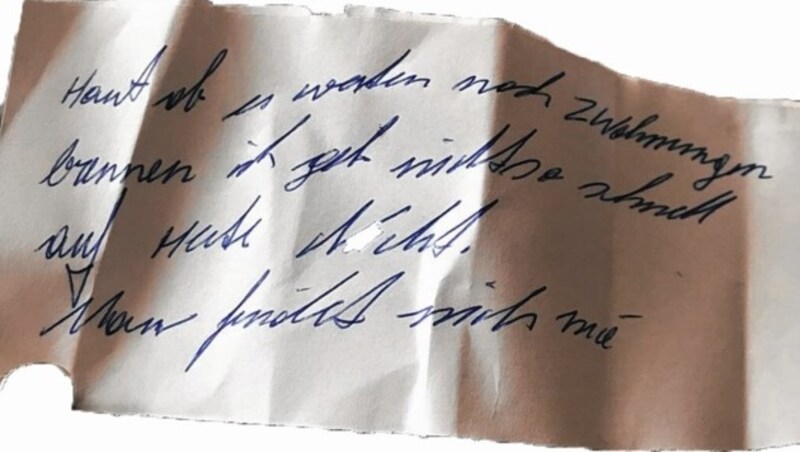 Haut ab es werden noch 2 Wohnungen
brennen ich geb nicht so schnell
auf Heute Nacht.
Man findet mich nie